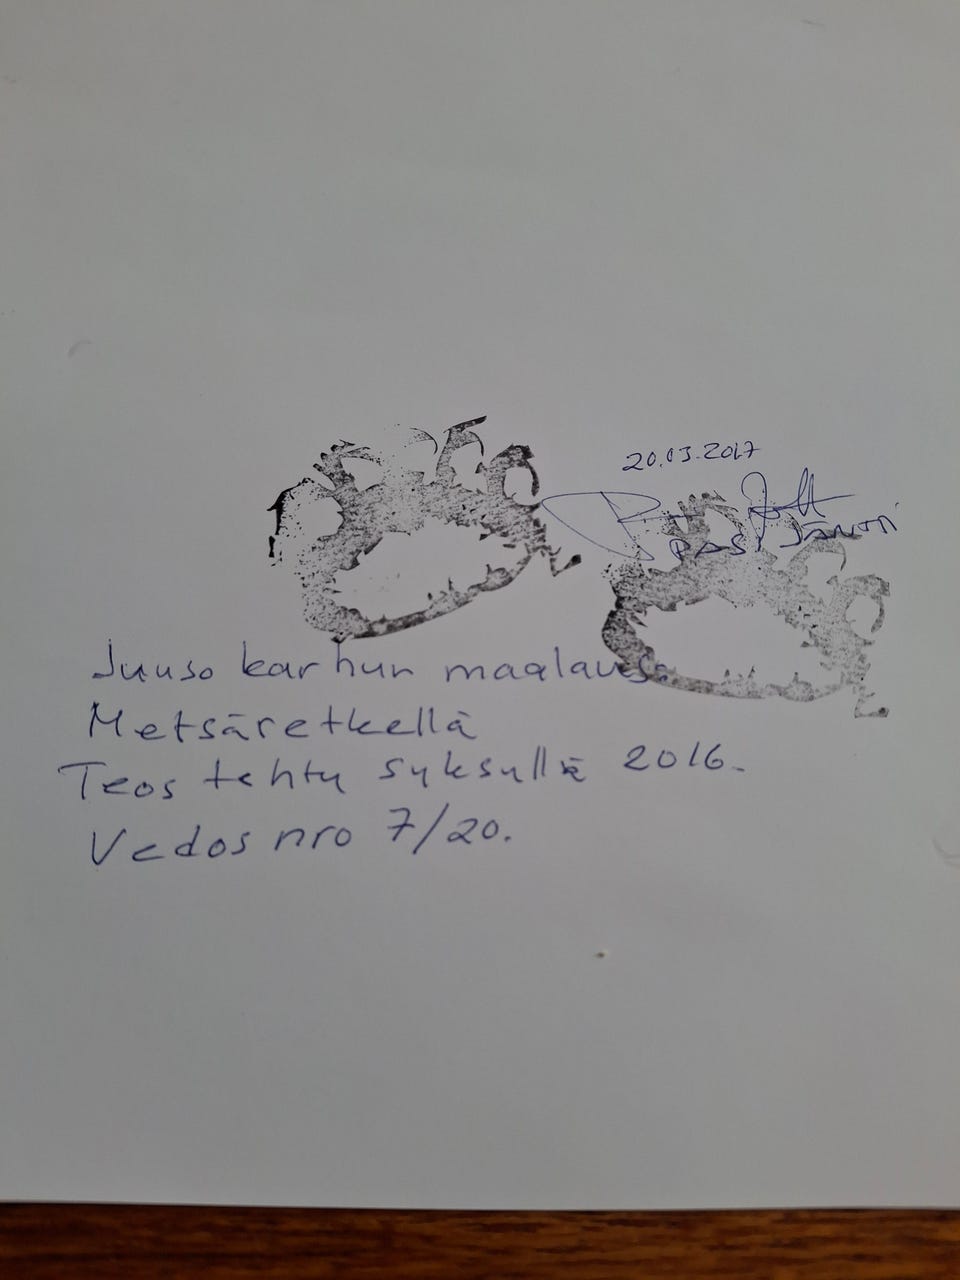 20.03.2017
PASI JÄNTTI
Juuso karhun maalaus:
Metsäretkellä
Teos tehty syksyllä 2016.
Vedos nro 7/20.